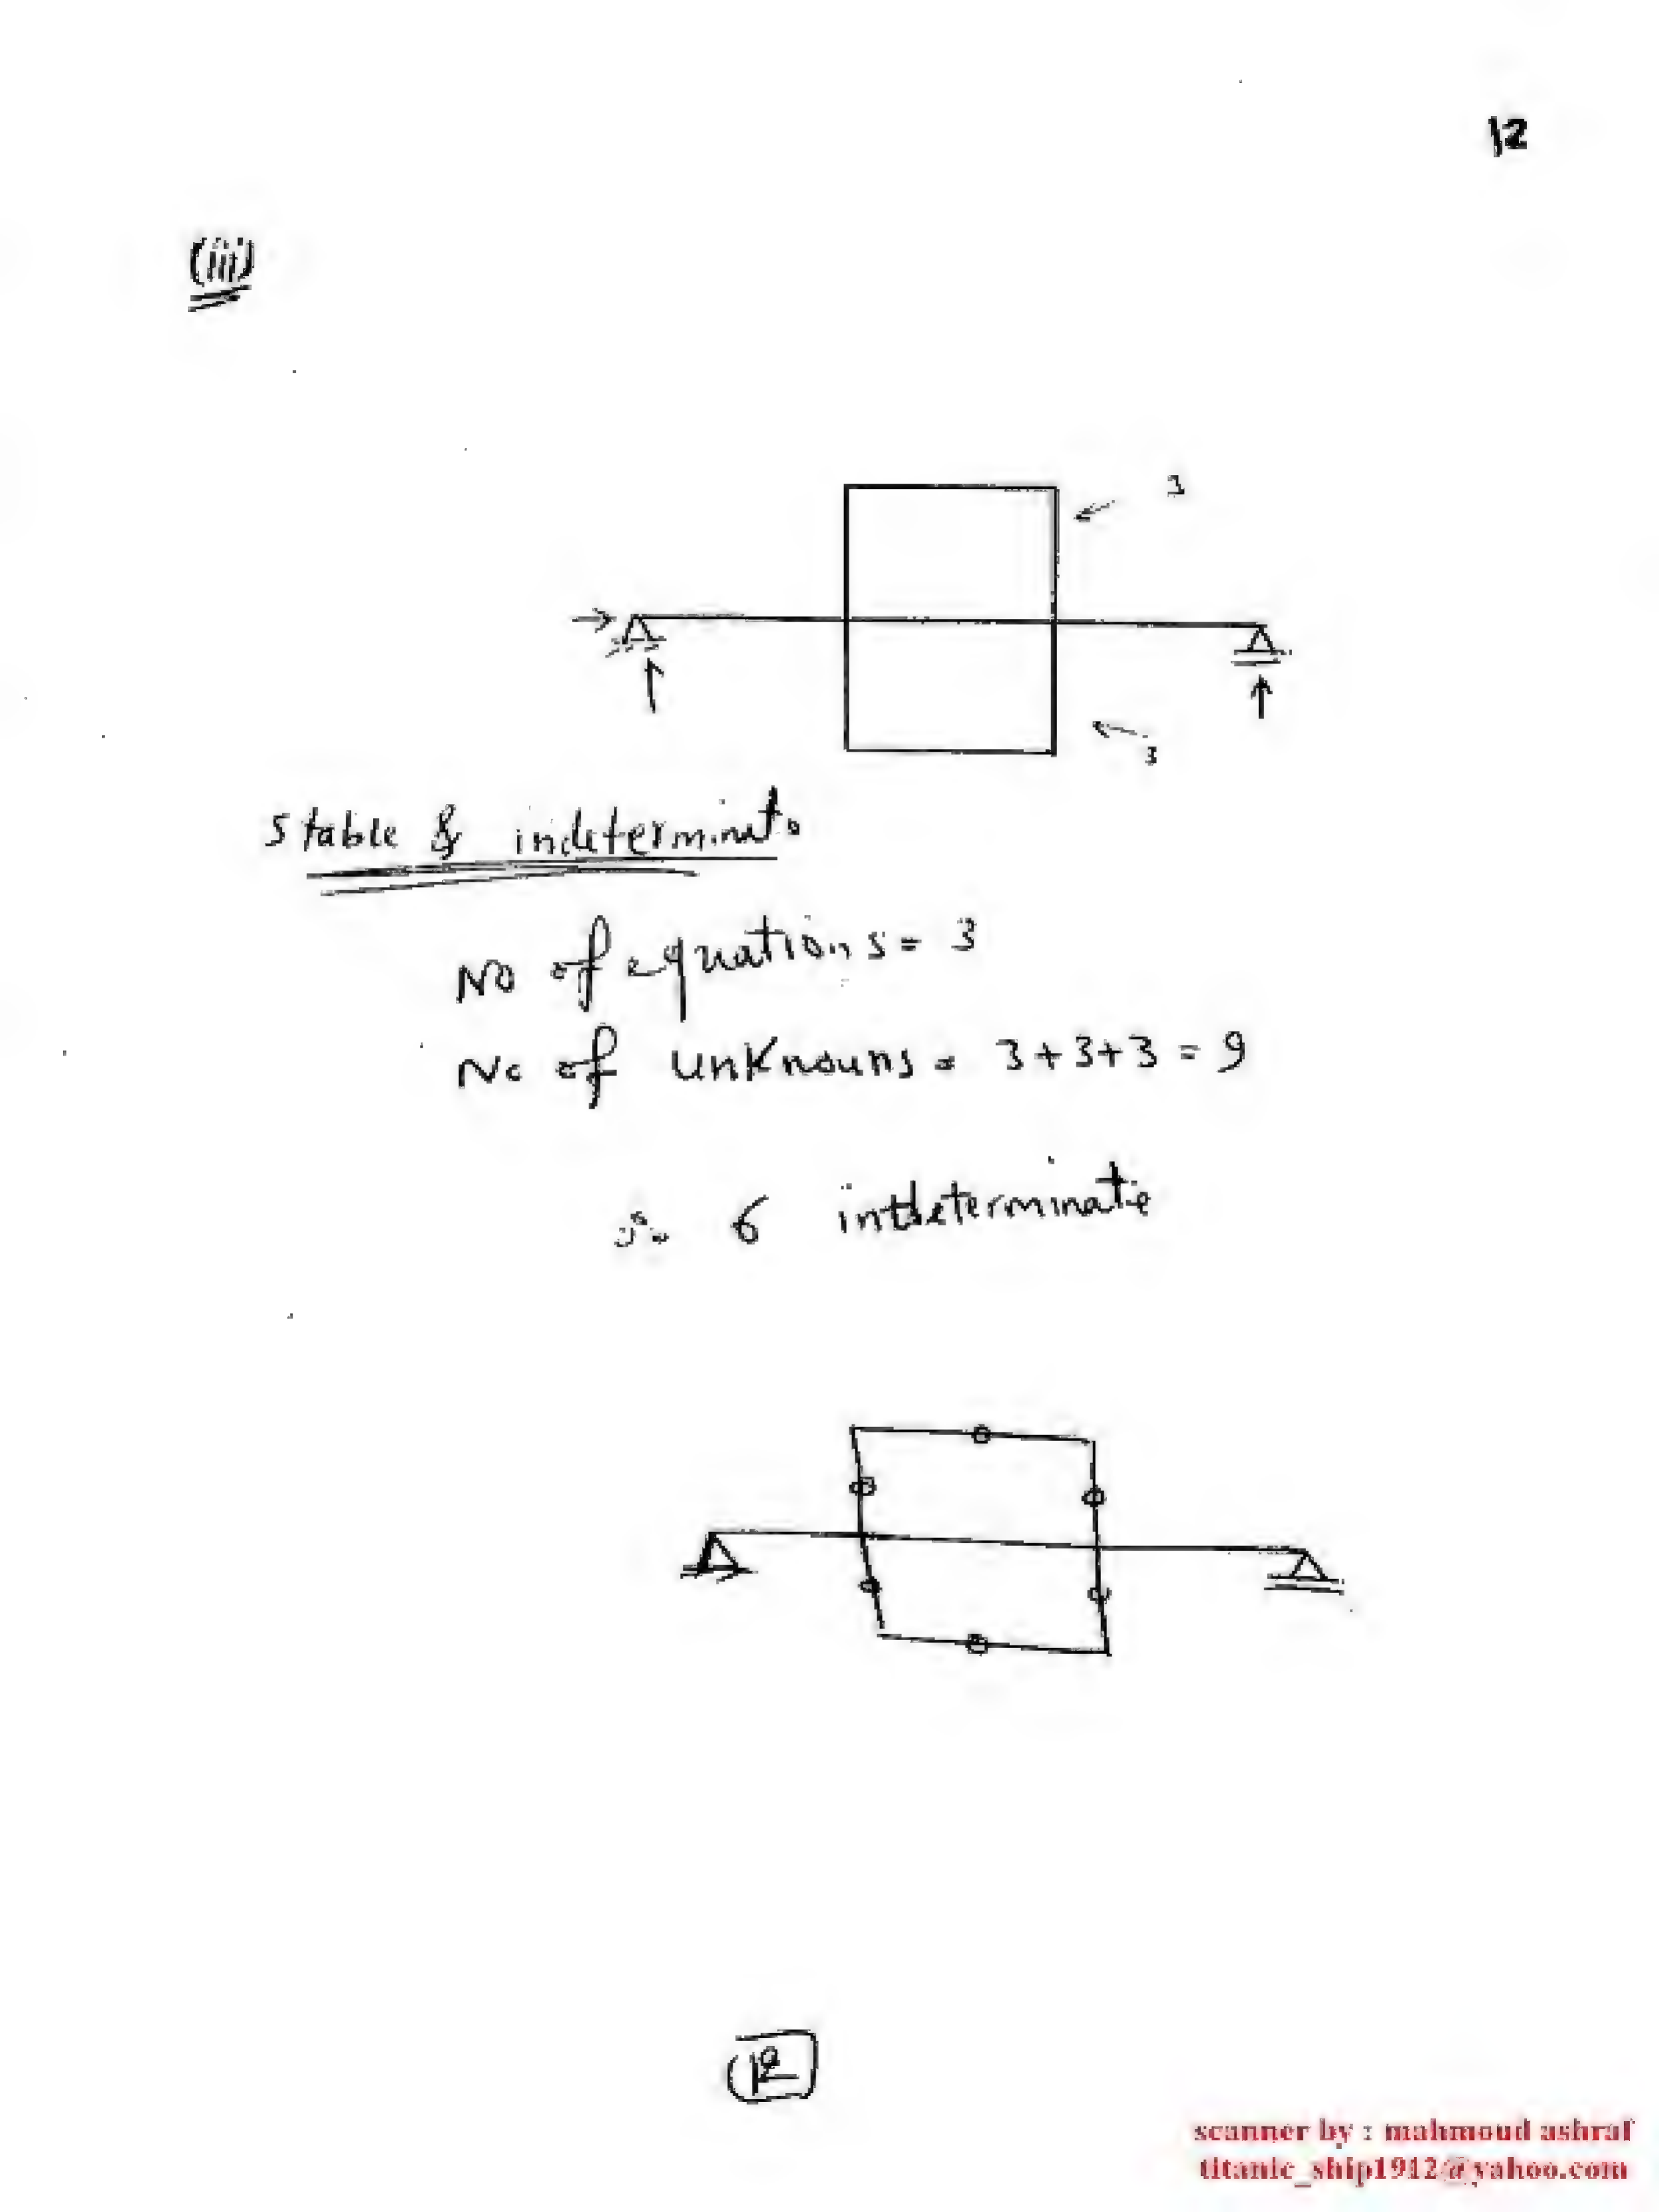 12
(iii)
3
3
Stable & indeterminate
No of equations = 3
No of unknouns = 3+3+3 = 9
∴ 6 intdeterminate
12
scanner by : mahmoud ashraf
titanic_ship1912@yahoo.com